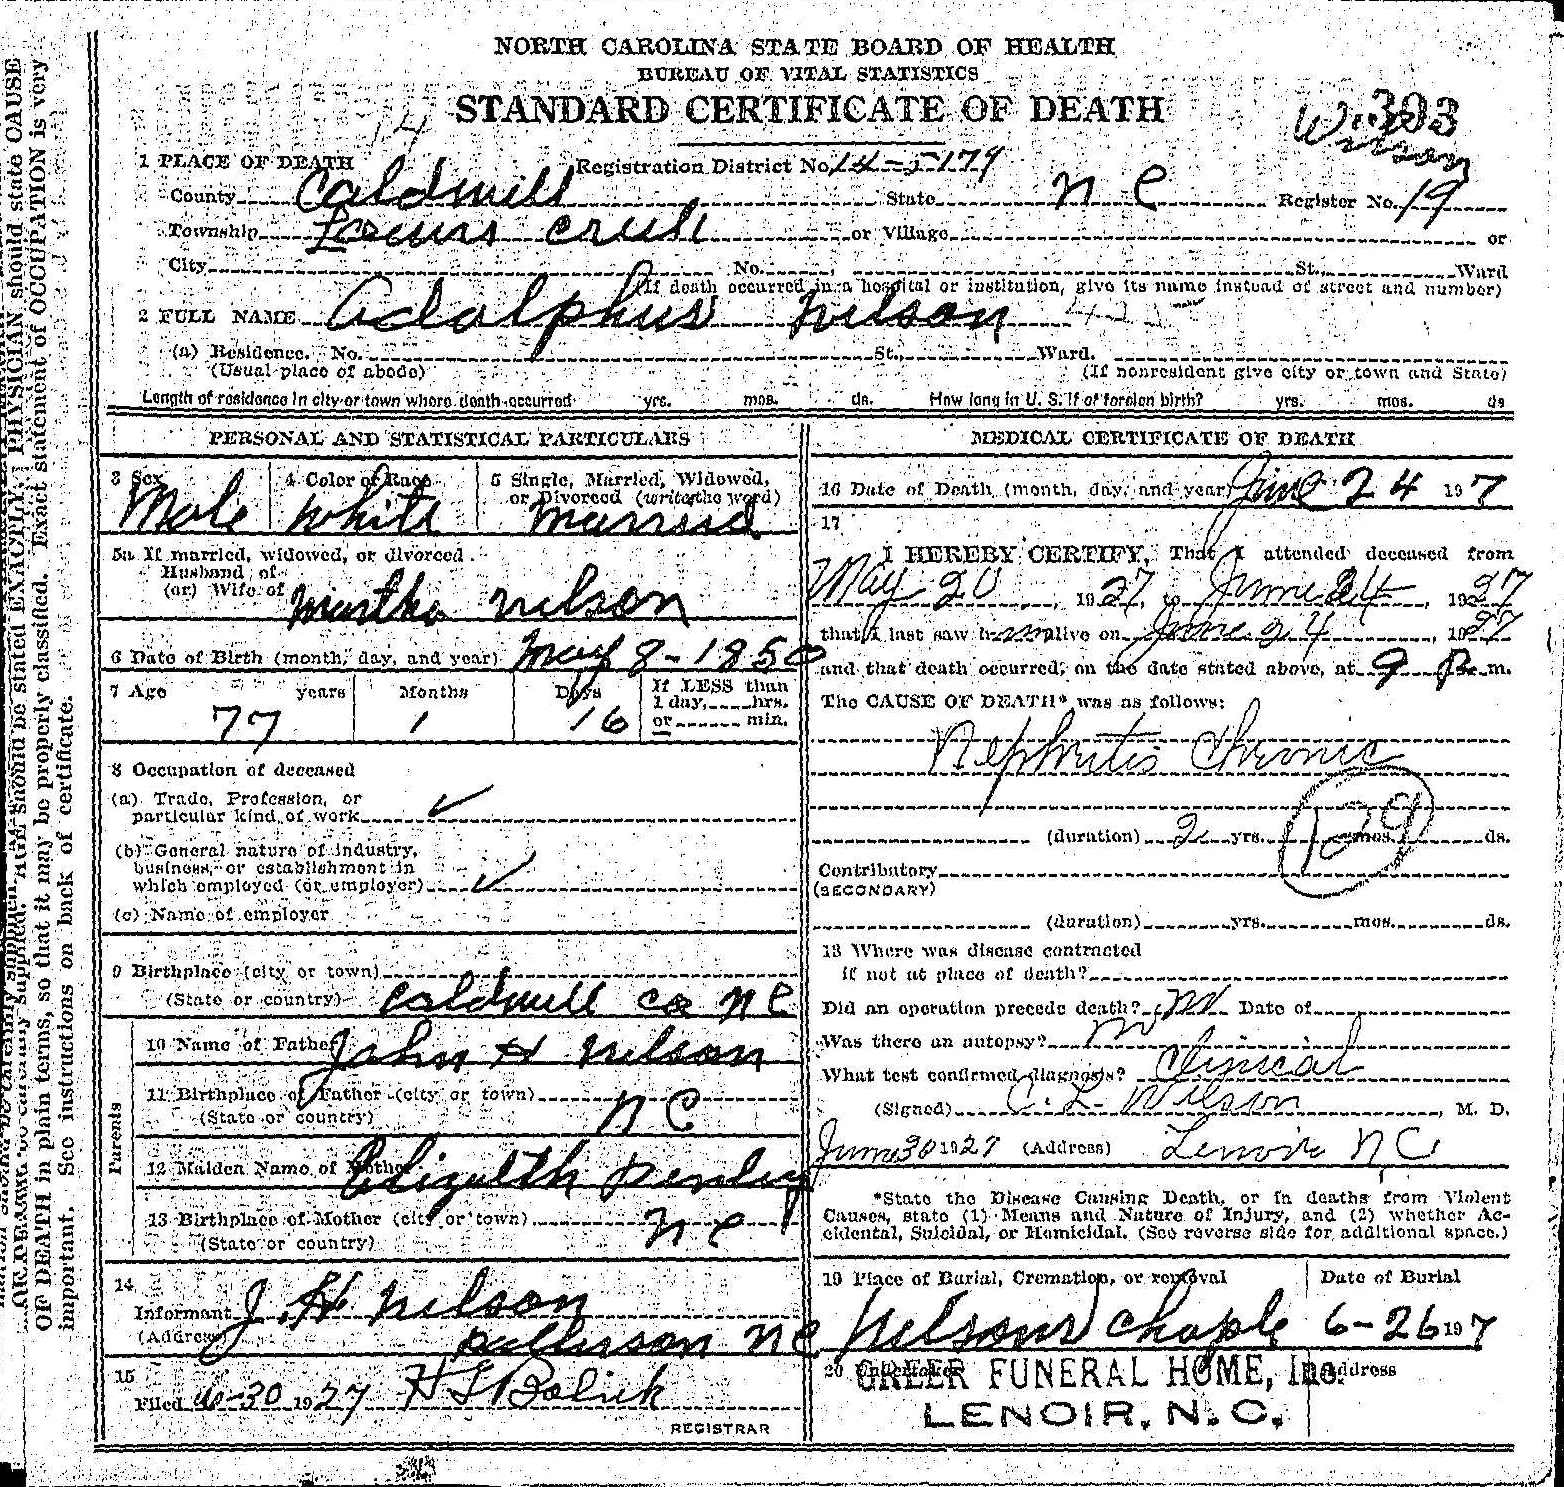 NORTH CAROLINA STATE BOARD OF HEALTH
BUREAU OF VITAL STATISTICS
STANDARD CERTIFICATE OF DEATH
393
Wilson
14
1 PLACE OF DEATH Registration District No. 14-5179
County Caldwell State N C Register No. 19
Township or Village or
City No. , St., Ward
(If death occurred in a hospital or institution, give its name instead of street and number)
2 FULL NAME Adolphus Nelson
(a) Residence. No. St., Ward.
(Usual place of abode) (If nonresident give city or town and State)
Length of residence in city or town where death occurred yrs. mos. ds. How long in U. S. if of foreign birth? yrs. mos. ds
PERSONAL AND STATISTICAL PARTICULARS
3 Sex 4 Color or Race 5 Single, Married, Widowed,
or Divorced (write the word)
Male White Married
5a If married, widowed, or divorced
Husband of
(or) Wife of Martha Nelson
6 Date of Birth (month, day, and year) May 8-1850
7 Age years Months Days If LESS than
1 day, hrs.
or min.
77 1 16
8 Occupation of deceased
(a) Trade, Profession, or
particular kind of work
(b) General nature of industry,
business, or establishment in
which employed (or employer)
(c) Name of employer
9 Birthplace (city or town)
(State or country) Caldwell Co N C
Parents
10 Name of Father John H Nelson
11 Birthplace of Father (city or town)
(State or country) N C
12 Maiden Name of Mother Elizabeth Penley
13 Birthplace of Mother (city or town)
(State or country) N C
14
Informant J. H. Nelson
(Address) Patterson N C
15
Filed 6-30 1927 H S Bolick
REGISTRAR
MEDICAL CERTIFICATE OF DEATH
16 Date of Death (month, day, and year) June 24 197
17
I HEREBY CERTIFY, That I attended deceased from
May 20, 1927, to June 24, 1927
that I last saw him alive on June 24, 1927
and that death occurred, on the date stated above, at 9 P. m.
The CAUSE OF DEATH* was as follows:
Nephritis Chronic
129
(duration) 2 yrs. mos. ds.
Contributory
(SECONDARY)
(duration) yrs. mos. ds.
18 Where was disease contracted
if not at place of death?
Did an operation precede death? no Date of
Was there an autopsy? no
What test confirmed diagnosis? Clinical
(Signed) C. L. Wilson, M. D.
June 30 1927 (Address) Lenoir N C
*State the Disease Causing Death, or in deaths from Violent
Causes, state (1) Means and Nature of Injury, and (2) whether Ac-
cidental, Suicidal, or Homicidal. (See reverse side for additional space.)
19 Place of Burial, Cremation, or removal Date of Burial
Nelsons Chaple 6-26 197
20 Undertaker Address
GREER FUNERAL HOME, Inc.
LENOIR, N. C.
PHYSICIAN should state CAUSE
OF DEATH in plain terms, so that it may be properly classified. Exact statement of OCCUPATION is very
important. See instructions on back of certificate.